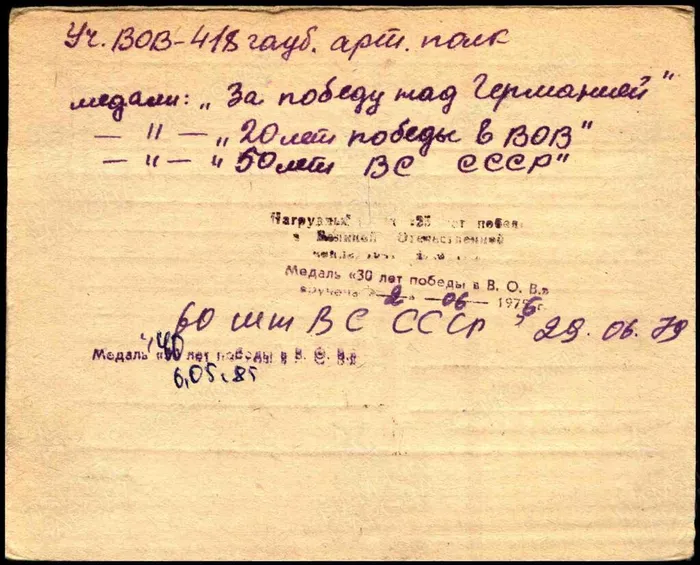 Уч. ВОВ-418 гауб. арт. полк
медали: „За победу над Германией"
— " — „20 лет победы в ВОВ"
— " — „50 лет ВС СССР"
Нагрудный побе
в Великой Отечественной
Медаль «30 лет победы в В. О. В.»
вручена «2» 06 1976 г.
60 лет ВС СССР 29.06.79
Медаль «40 лет победы в В. О. В.»
6.05.85